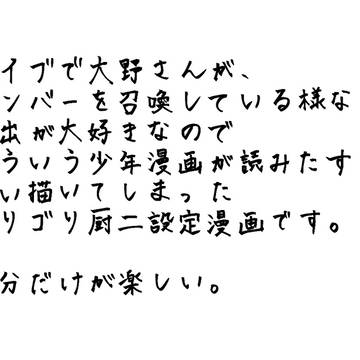 イブで大野さんが、
ンバーを召喚している様な
出が大好きなので
ういう少年漫画が読みたす
い描いてしまった
りゴリ厨二設定漫画です。
分だけが楽しい。